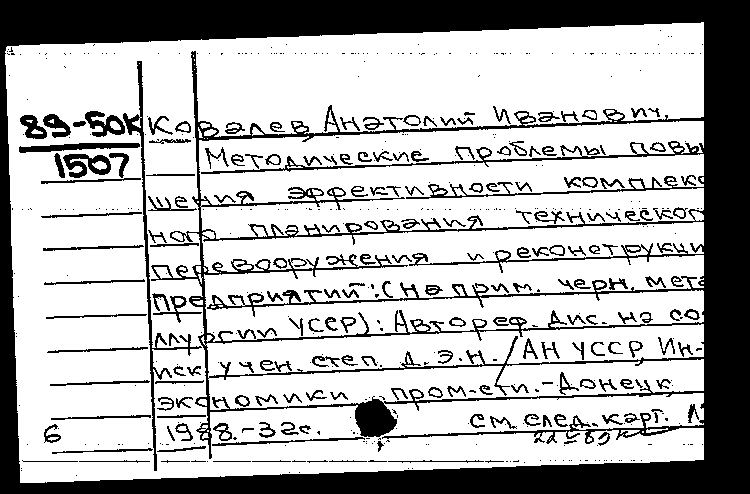 89-50К
1507
Ковалев, Анатолий Иванович.
Методические проблемы повы
шения эффективности комплекс
ного планирования техническог
перевооружения и реконструкци
предприятий: (На прим. черн. мета
ллургии УССР): Автореф. дис. на со
иск. учен. степ. д.э.н. / АН УССР, Ин-
экономики пром-сти. - Донецк,
1988. - 32 с.
см. след. карт.
6